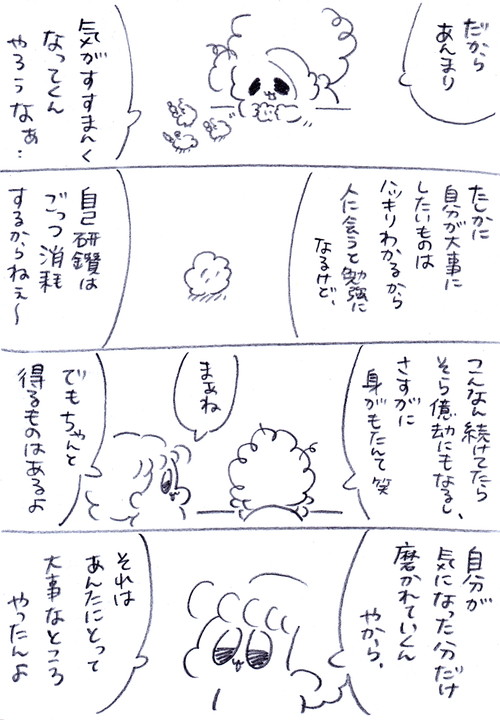 だから
あんまり
気がすすまんく
なってくん
やろうなぁ…
たしかに
自分が大事に
したいものは
ハッキリわかるから
人に会うと勉強に
なるけど、
自己研鑽は
ごっつ消耗
するからねぇ〜
こんなん続けてたら
そら億劫にもなるし、
さすがに
身がもたんて笑
まぁね
でもちゃんと
得るものはあるよ
自分が
気になった分だけ
磨かれていくん
やから、
それは
あんたにとって
大事なところ
やったんよ